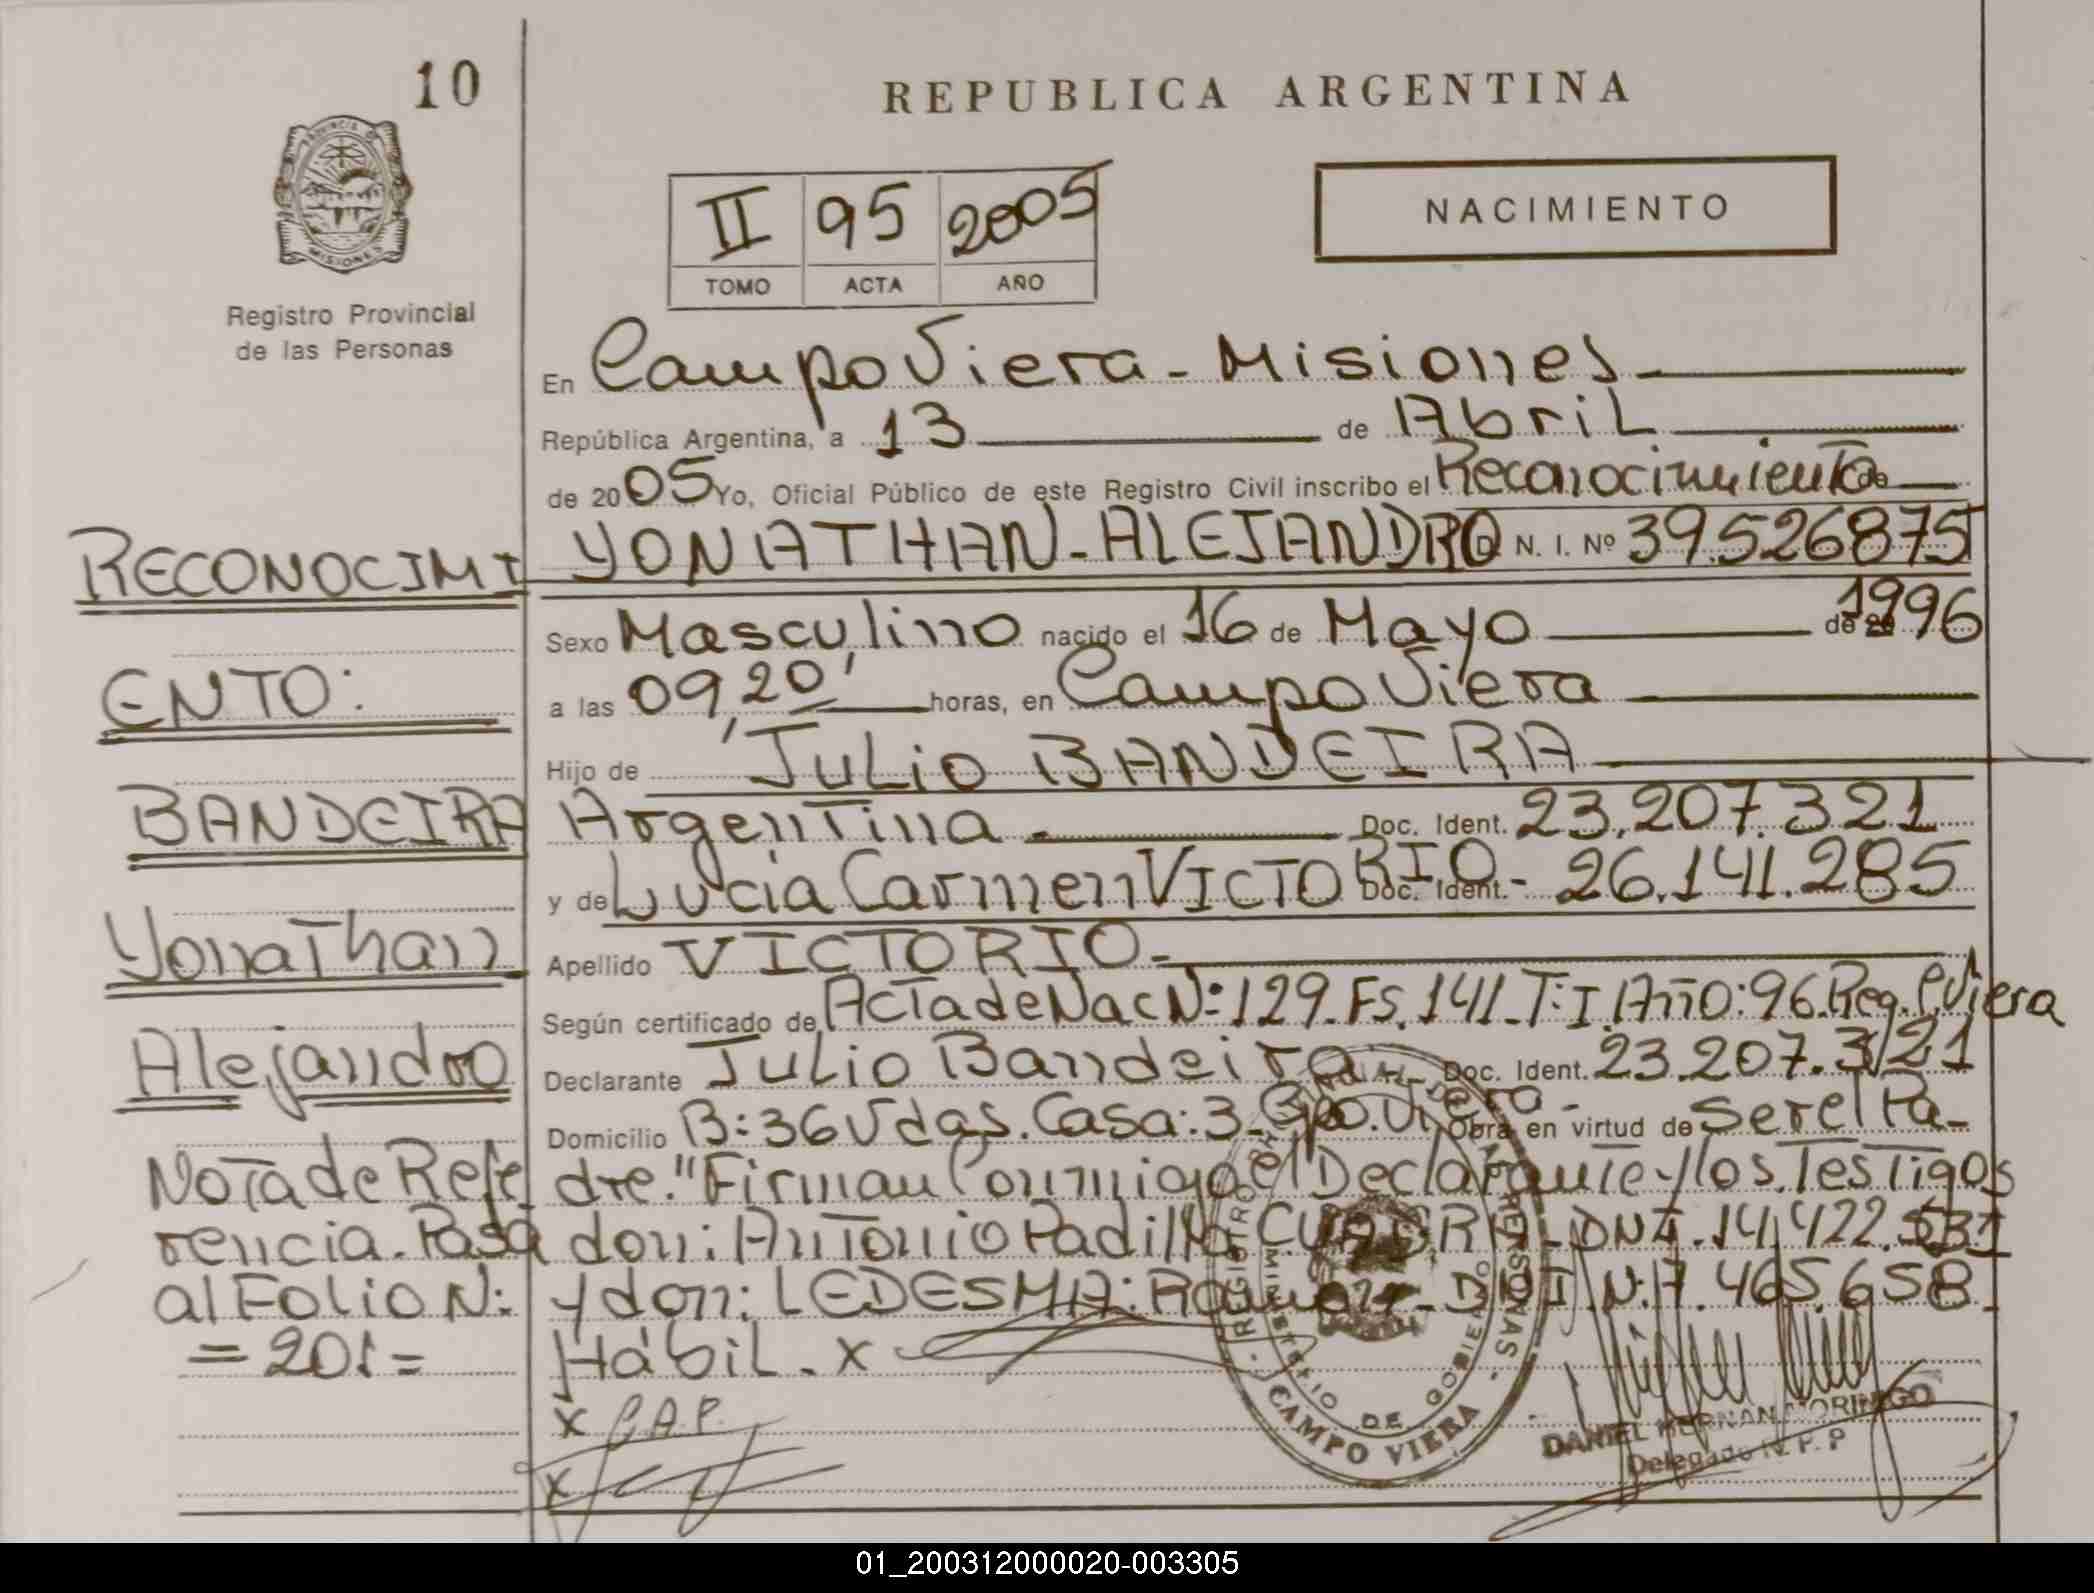 10
REPUBLICA ARGENTINA
PROVINCIA DE
MISIONES
Registro Provincial
de las Personas
II 95 2005
TOMO ACTA AÑO
NACIMIENTO
En Campo Viera - Misiones
República Argentina, a 13 de Abril
de 2005 Yo, Oficial Público de este Registro Civil inscribo el Reconocimiento de
YONATHAN - ALEJANDRO D. N. I. Nº 39.526875
Sexo Masculino nacido el 16 de Mayo de 1996
a las 09,20' horas, en Campo Viera
Hijo de Julio BANDEIRA
Argentina - Doc. Ident. 23.207.321
y de Lucia Carmen VICTORIO Doc. Ident. - 26.141.285
Apellido VICTORIO -
Según certificado de Acta de Nac N: 129. Fs. 141. T: I. Año: 96. Reg. C. Viera
Declarante Julio Bandeira Doc. Ident. 23.207.321
Domicilio B: 36 Vdas. Casa: 3. Cpo. Viera - Obra en virtud de Ser el Pa-
dre." Firman Conmigo el Declarante y los Testigos
don: Antonio Padilla CUAGRA - DNI. 14.422.
y don: LEDESMA: Ramon - DNI. N: 7.465.658.
Hábil. x
x C.A.P.
x
RECONOCIMI
ENTO:
BANDEIRA
Yonathan
Alejandro
Nota de Refe
rencia. Pasa
al Folio N:
= 201 =
REGISTRO PROVINCIAL DE LAS PERSONAS
MINISTERIO DE GOBIERNO
CAMPO VIERA
DANIEL HERNAN MORINIGO
Delegado R. P. P
01_200312000020-003305